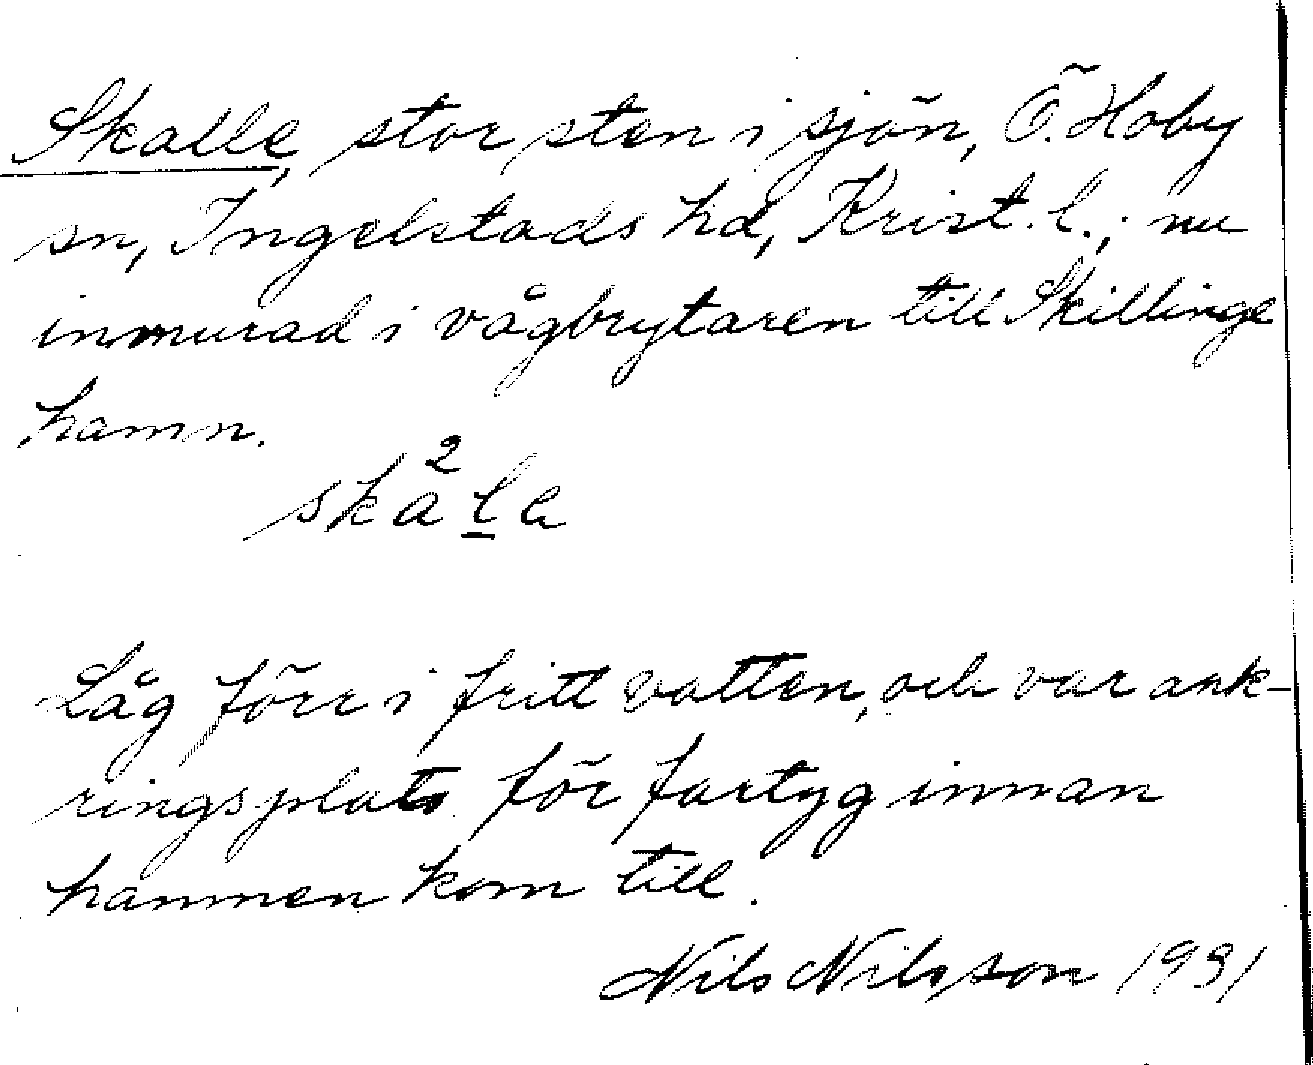 Skalle, stor sten i sjön, Ö. Hoby
sn, Ingelstads hd, Krist. l.; nu
inmurad i vågbrytaren till Skillinge
hamn.
2
skala
Låg förr i fritt vatten, och var ank-
ringsplats för fartyg innan
hamnen kom till.
Nils Nilsson 1931